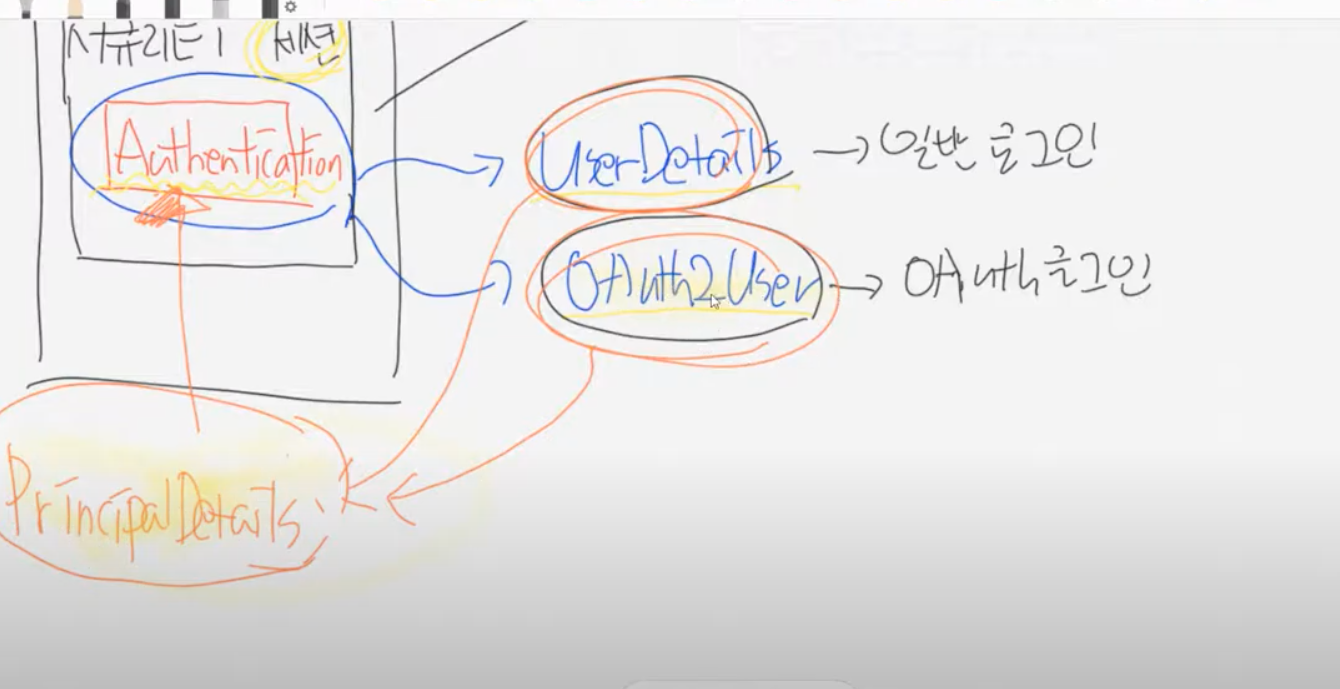 시큐리티 세션
Authentication
UserDetails → 일반 로그인
OAuth2User → OAuth 로그인
PrincipalDetails